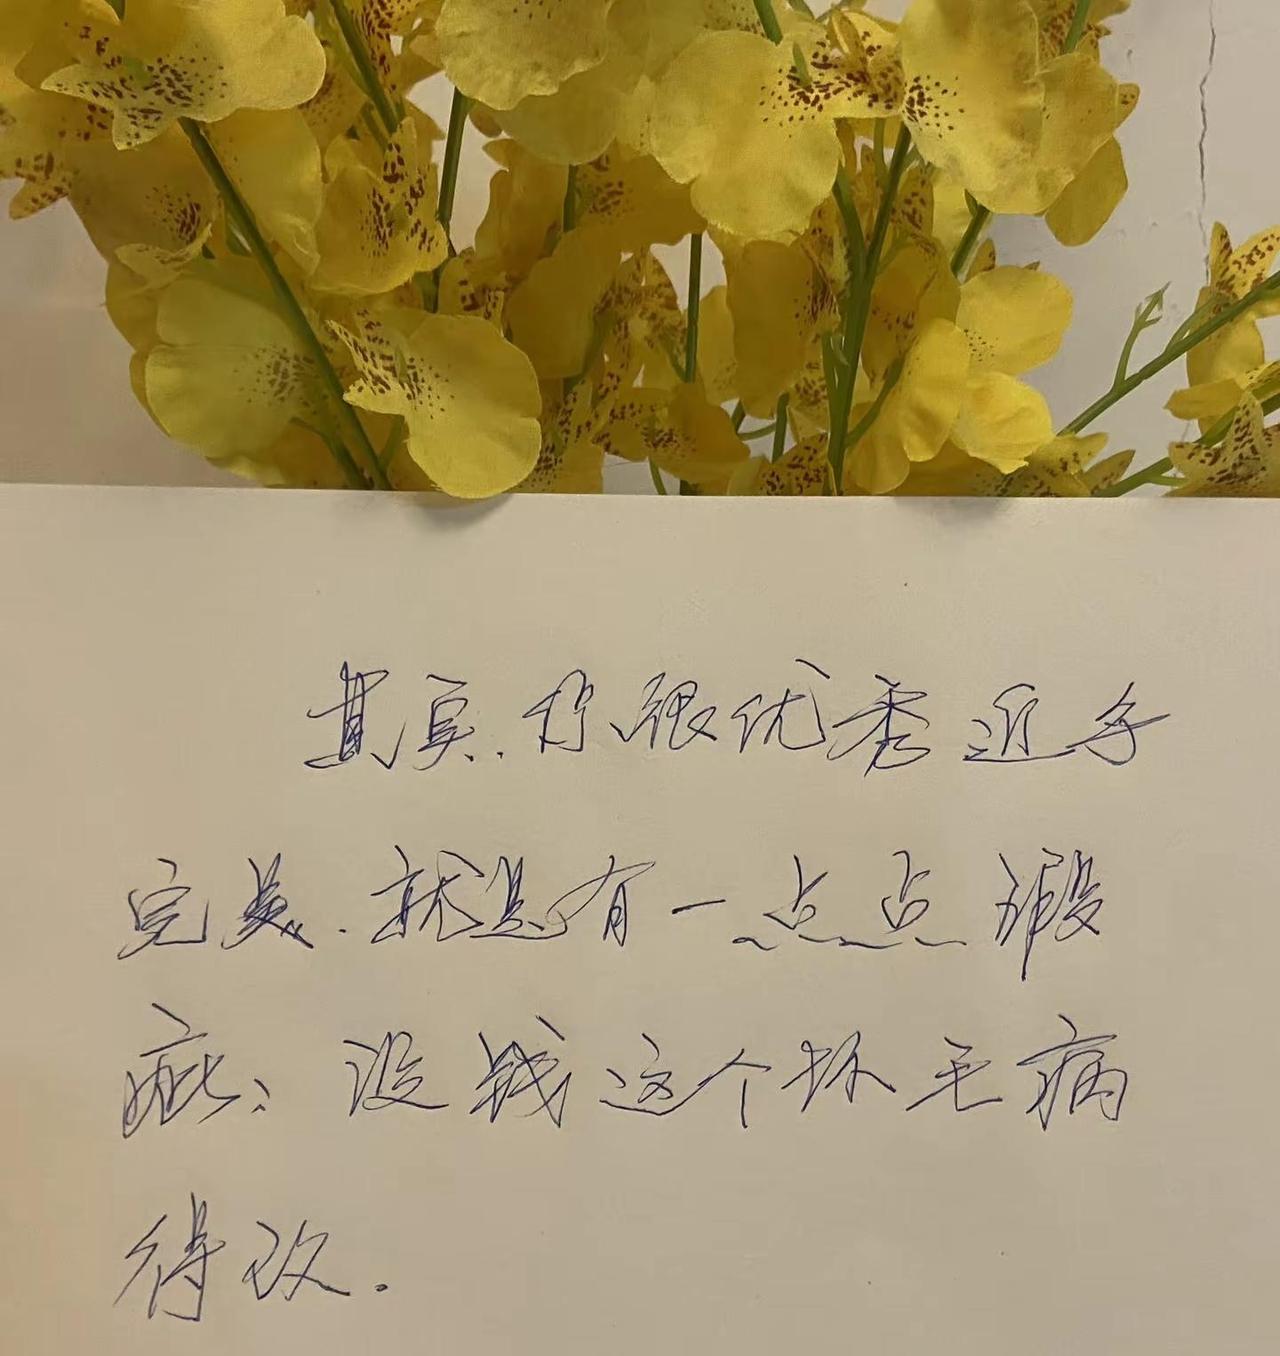 其实.你很优秀近乎
完美.就是有一点点瑕
疵、没钱这个坏毛病
得改.